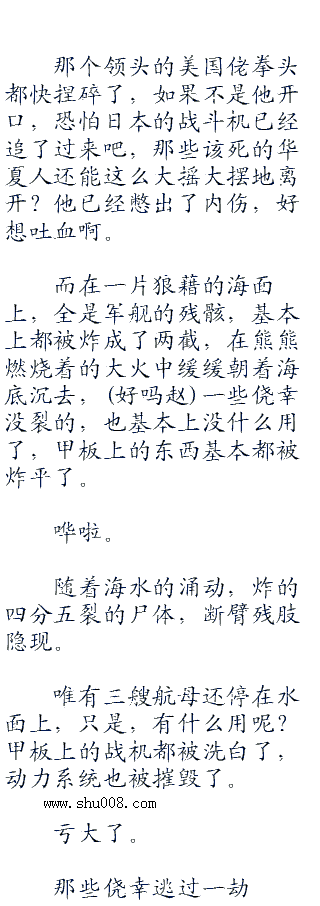 那个领头的美国佬拳头
都快捏碎了，如果不是他开
口，恐怕日本的战斗机已经
追了过来吧，那些该死的华
夏人还能这么大摇大摆地离
开？他已经憋出了内伤，好
想吐血啊。
而在一片狼藉的海面
上，全是军舰的残骸，基本
上都被炸成了两截，在熊熊
燃烧着的大火中缓缓朝着海
底沉去，(好吗赵)一些侥幸
没裂的，也基本上没什么用
了，甲板上的东西基本都被
炸平了。
哗啦。
随着海水的涌动，炸的
四分五裂的尸体，断臂残肢
隐现。
唯有三艘航母还停在水
面上，只是，有什么用呢？
甲板上的战机都被洗白了，
动力系统也被摧毁了。
www.shu008.com
亏大了。
那些侥幸逃过一劫